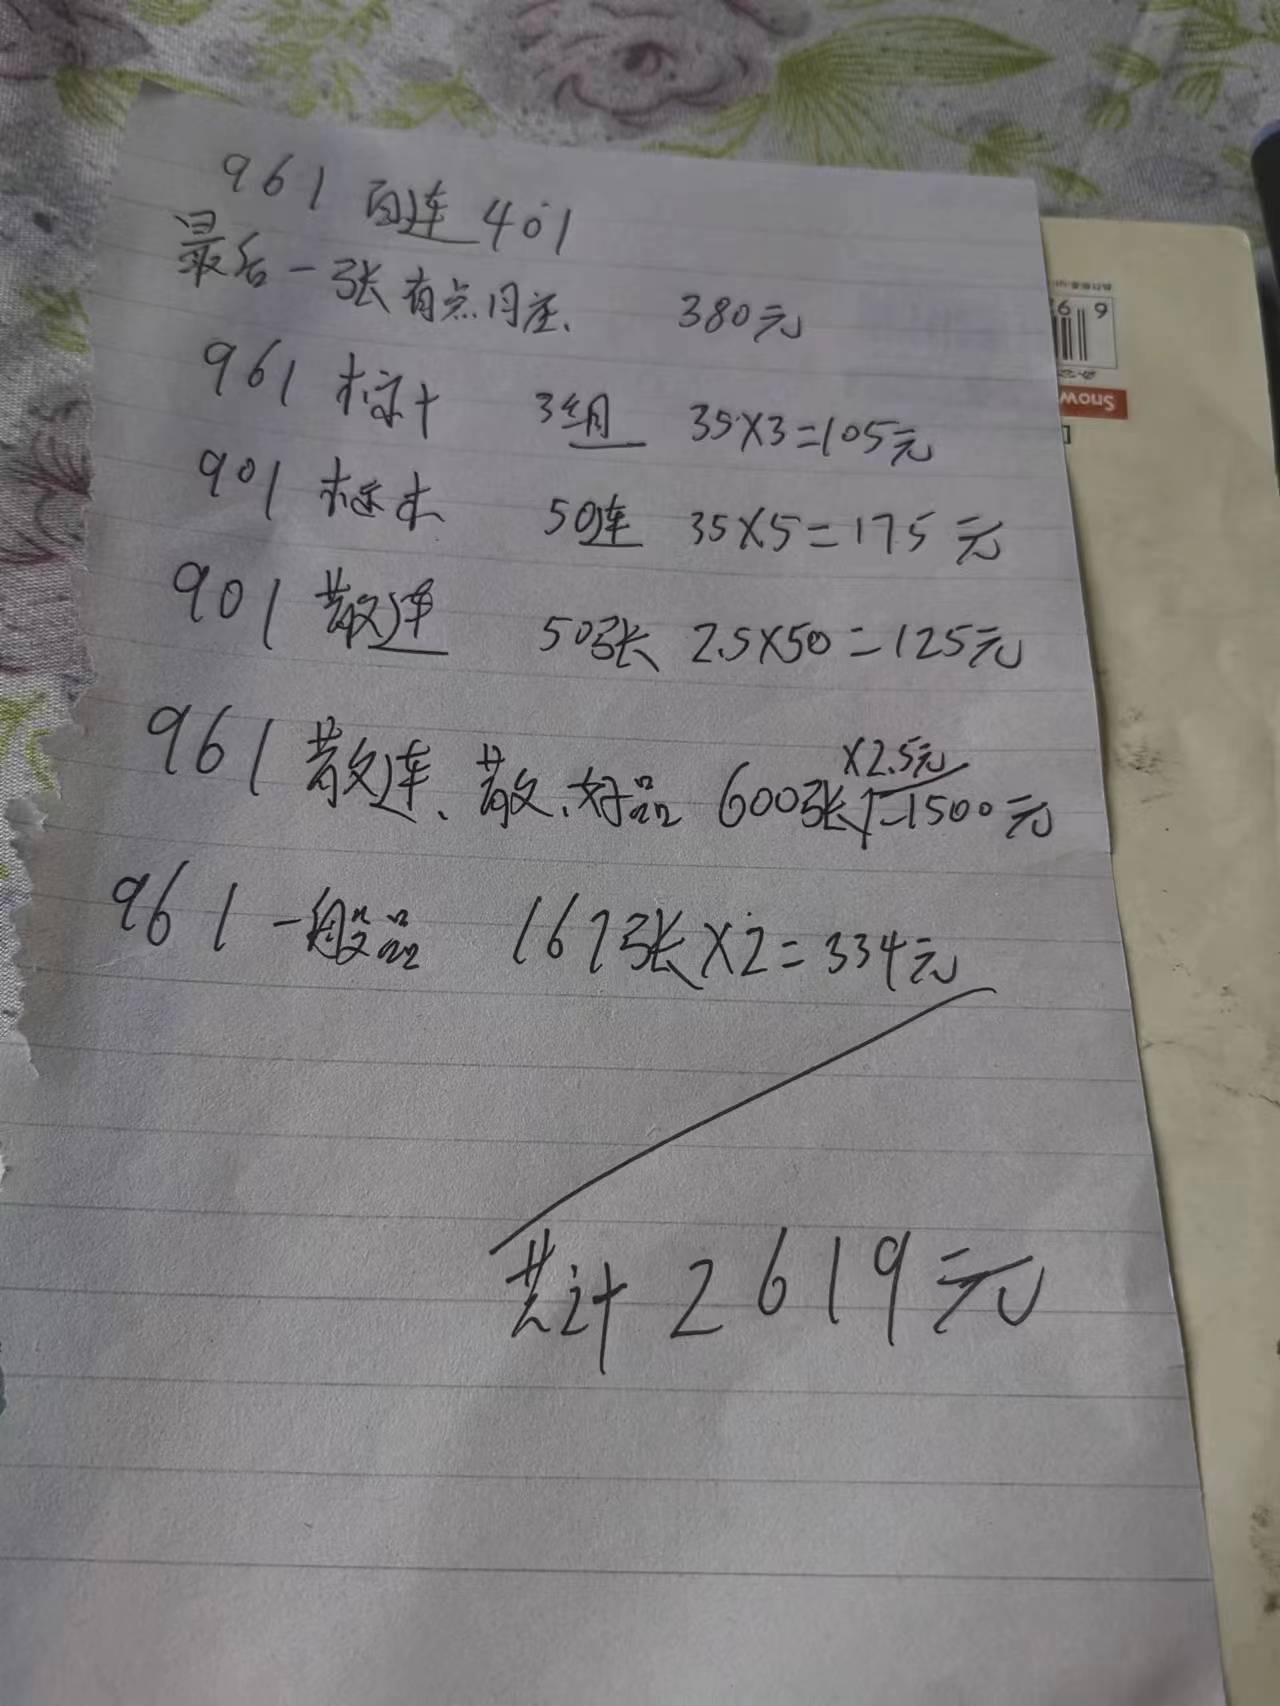 961 百连 401
最后一张有点闪压、 380元
961 标十 3组 35×3=105元
901 标十 50连 35×5=175元
901 散连 50张 2.5×50=125元
961 散连、散、好品 600张×2.5元=1500元
961 一般品 167张×2=334元
共计 2619元
Snow